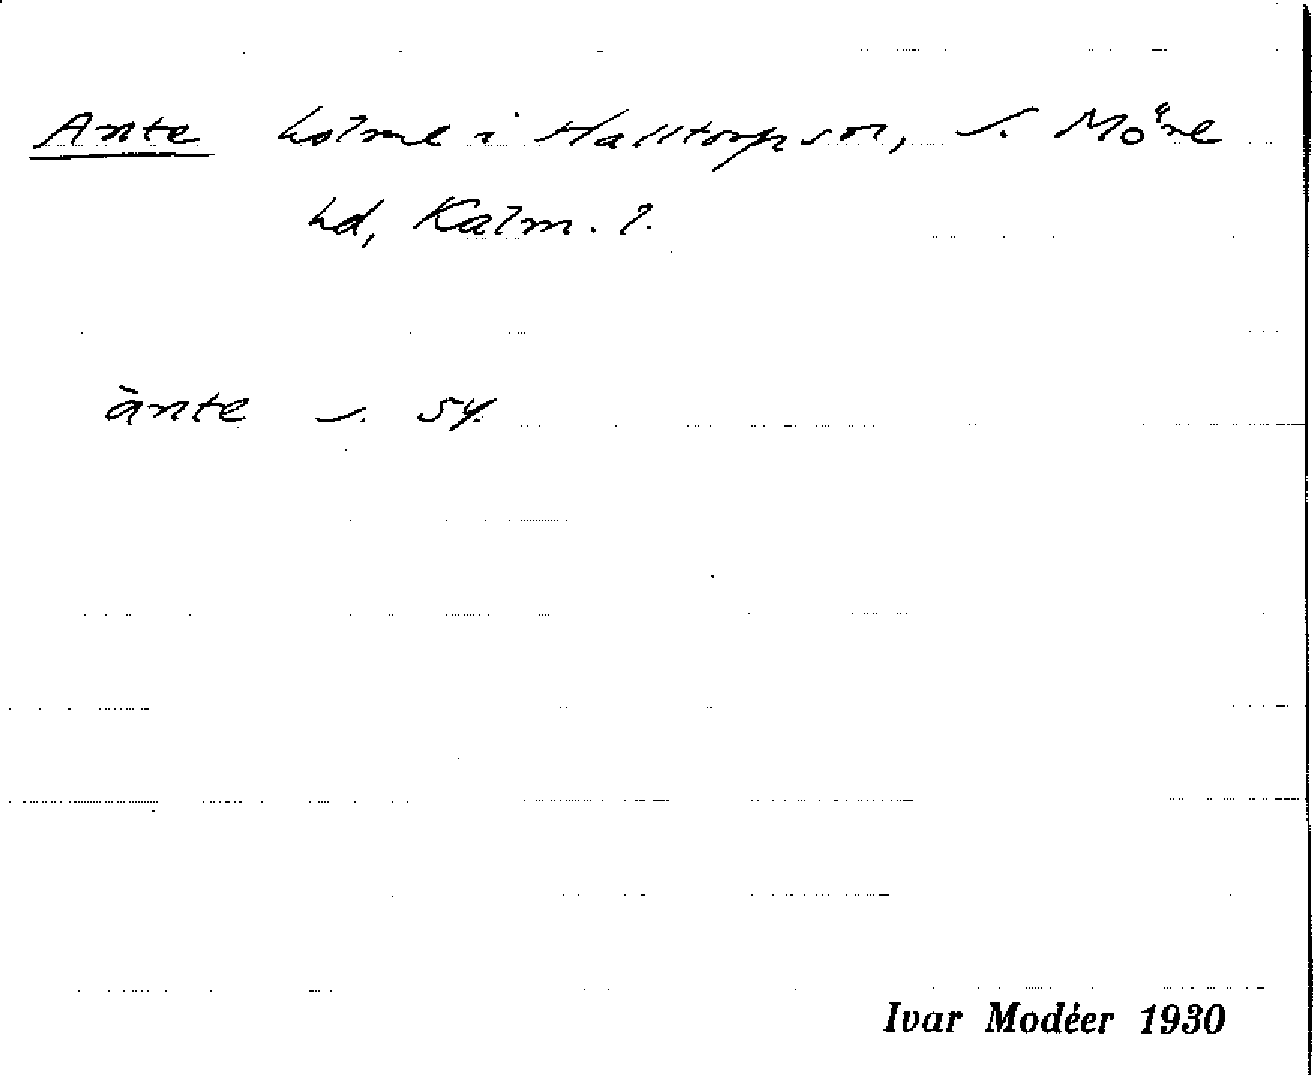 Ante holme i Halltorps sn, S. Möre
hd, Kalm. l.
ànte s. 54.
Ivar Modéer 1930